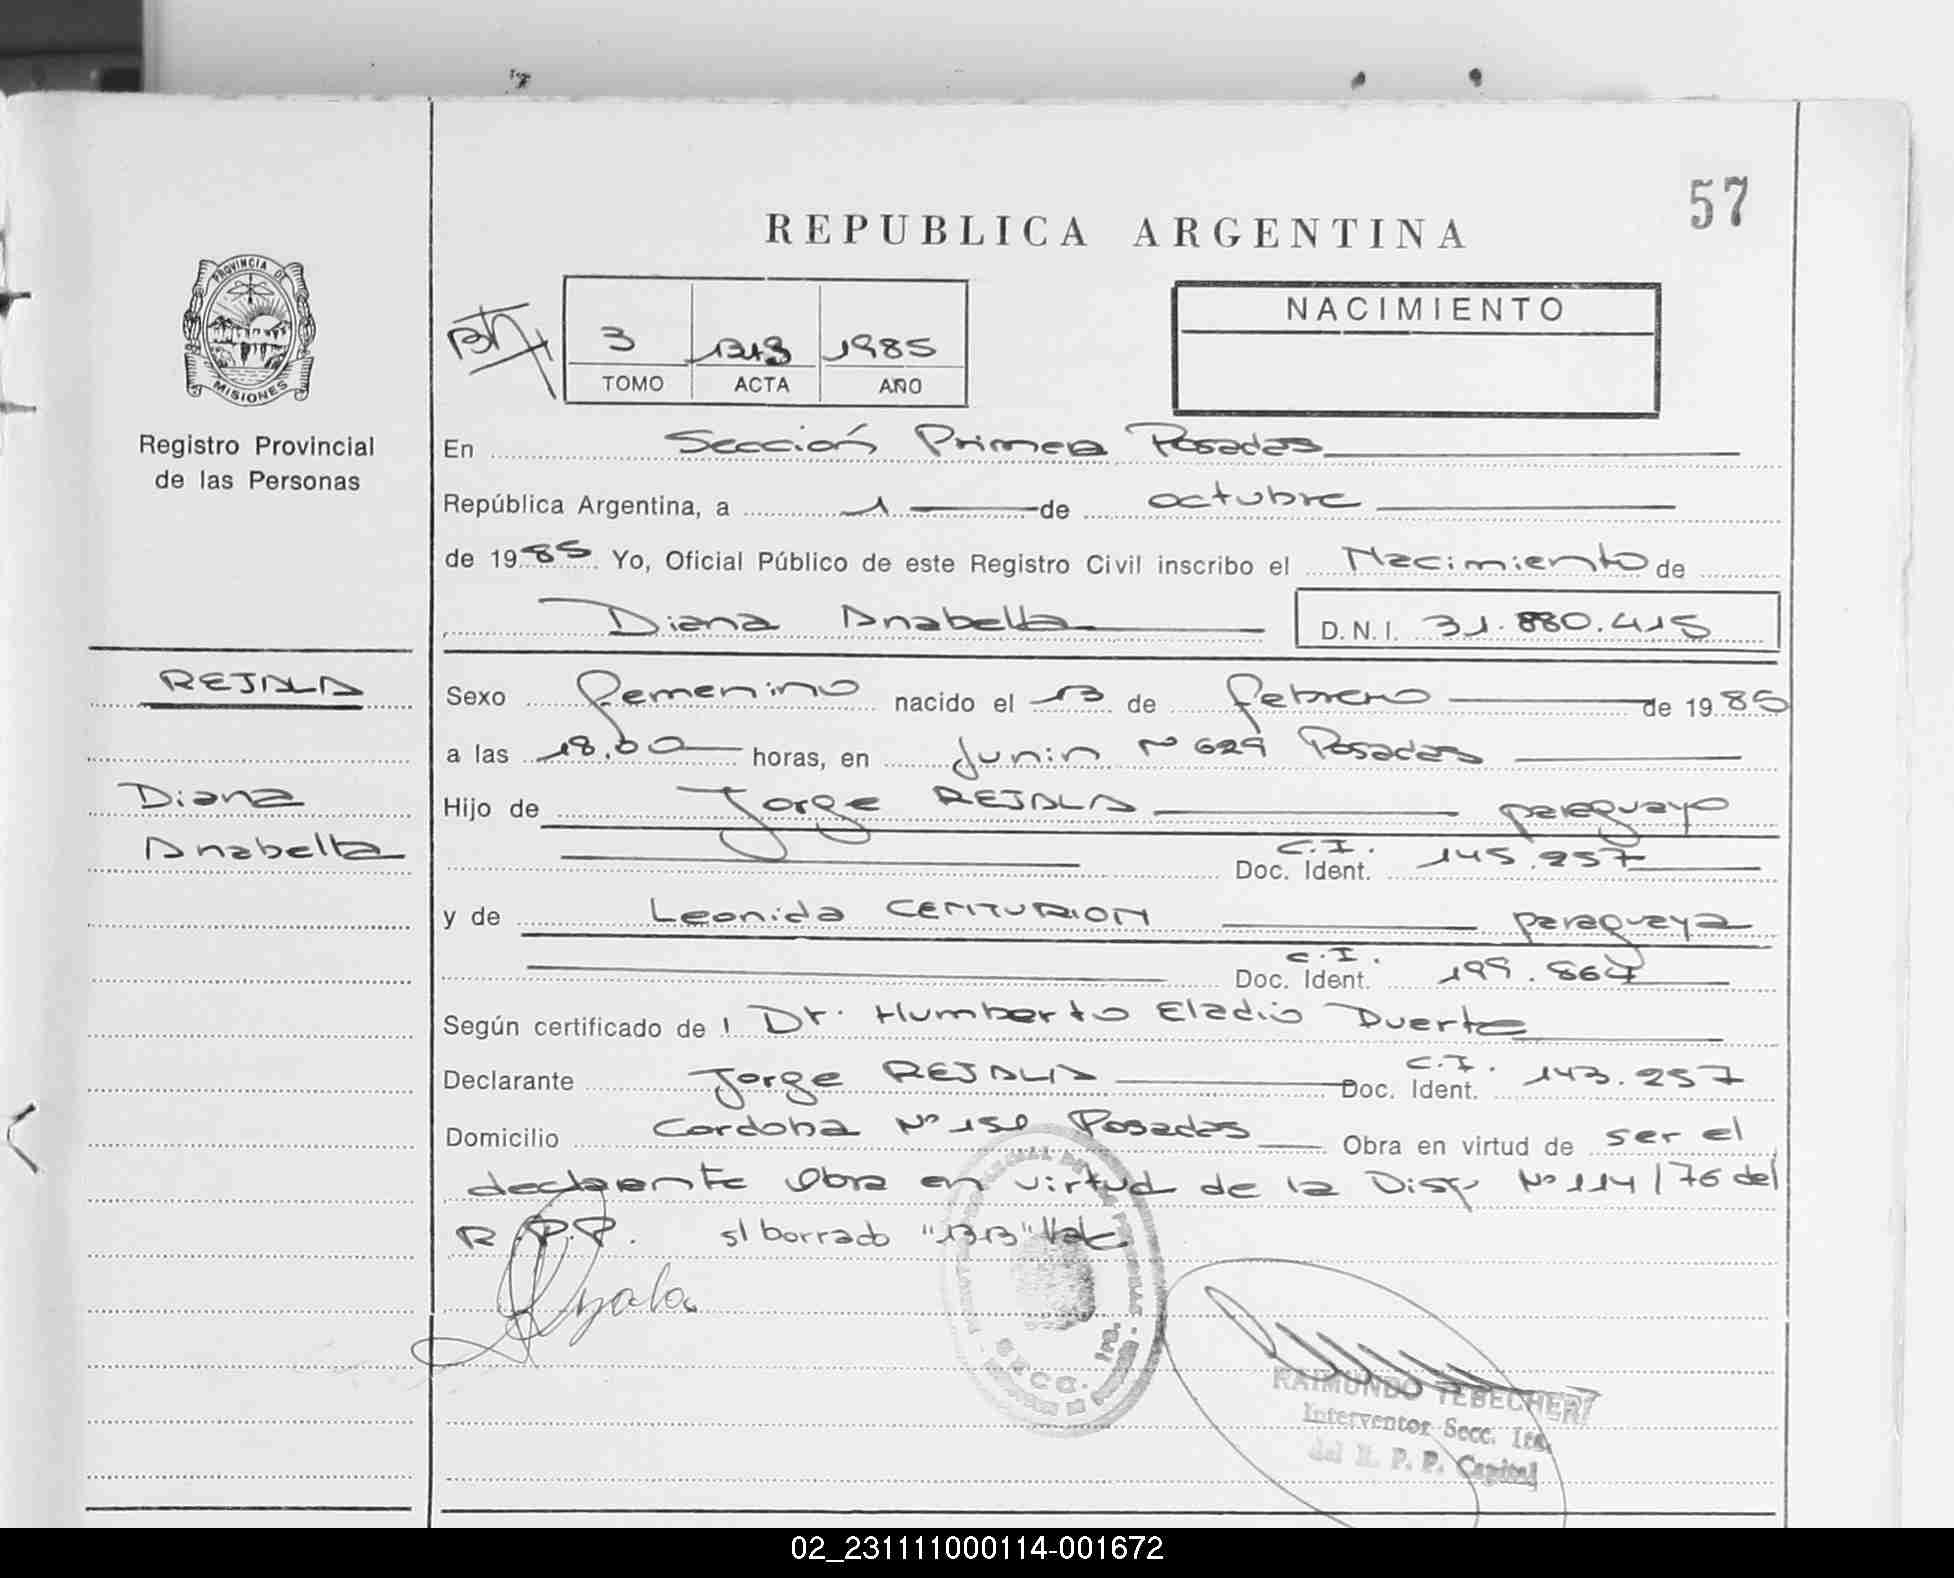 57
REPUBLICA ARGENTINA
PROVINCIA DE
MISIONES
Registro Provincial
de las Personas
3 1985
TOMO ACTA AÑO
NACIMIENTO
En Sección Primera Posadas
República Argentina, a 1 de octubre
de 1985 Yo, Oficial Público de este Registro Civil inscribo el Nacimiento de
Diana Anabella D.N.I. 31.880.415
REJALA
Diana
Anabella
Sexo femenino nacido el 13 de febrero de 1985
a las 18.00 horas, en Junin Nº 629 Posadas
Hijo de Jorge REJALA paraguayo
C.I.
Doc. Ident. 145.257
y de Leonida CENTURION paraguaya
C.I.
Doc. Ident. 199.864
Según certificado de : Dr. Humberto Eladio Duarte
Declarante Jorge REJALA C.I. Doc. Ident. 143.257
Domicilio Cordoba Nº 150 Posadas Obra en virtud de ser el
declarante Obra en virtud de la Disp. Nº 114/76 del
R.P.P. s/ borrado "1313" Vale
Ayala
SECC. 1ra.
RAIMUNDO TEBECHERI
Interventor Secc. 1ra.
del R. P. P. Capital
02_231111000114-001672